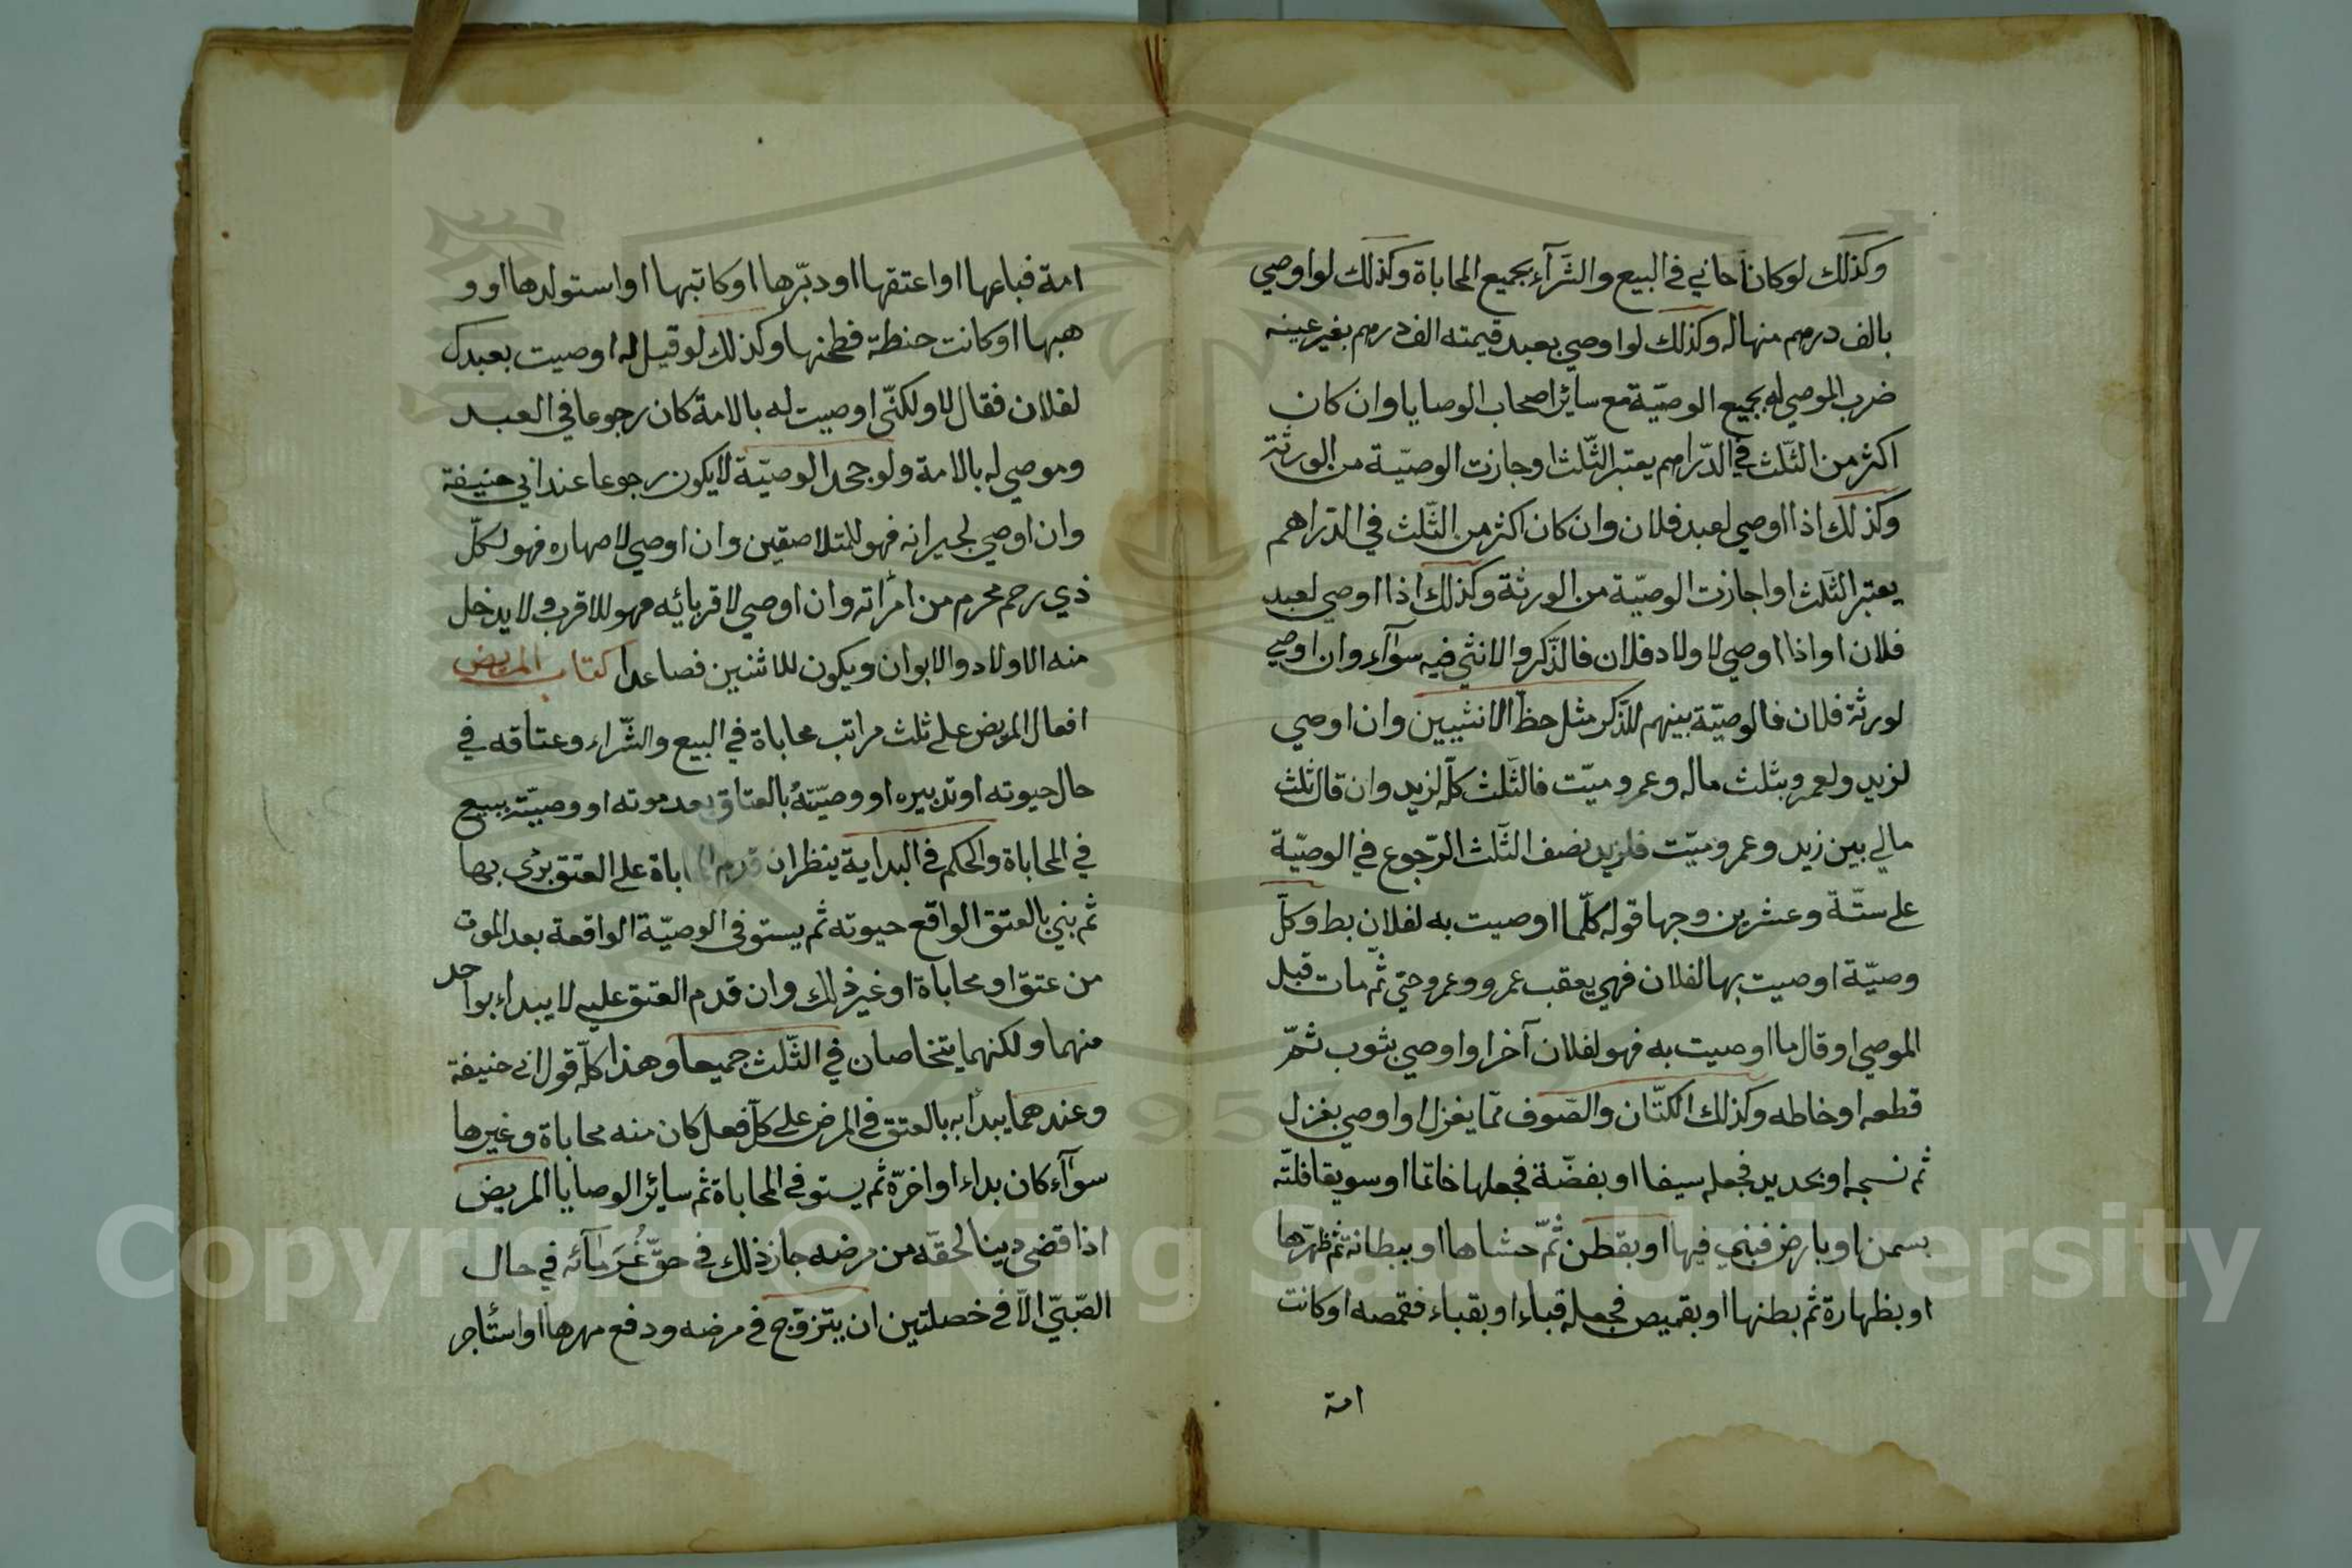 وكذلك لو كان حابي في البيع والشرآء بجميع المحاباة وكذلك لو اوصي
بالف درهم منها له وكذلك لو اوصي بعبد قيمته الف درهم بغير عينه
ضرب الموصي له بجميع الوصيّة مع سائر اصحاب الوصايا وان كان
اكثر من الثّلث في الدّراهم يعتبر الثّلث او جازت الوصيّة من الورثة
وكذلك اذا اوصي لعبد فلان وان كان اكثر من الثّلث في الدّراهم
يعتبر الثّلث او اجازت الوصيّة من الورثة وكذلك اذا اوصي لعبد
فلان او اذا اوصي لاولاد فلان فالذّكر والانثي فيه سوآء وان اوصي
لورثة فلان فالوصيّة بينهم للذّكر مثل حظّ الانثيين وان اوصي
لزيد ولعمرو بثلث ماله وعمرو ميّت فالثّلث كلّه لزيد وان قال ثلث
مالي بين زيد وعمرو ميّت فلزيد نصف الثّلث الرّجوع في الوصيّة
علي ستّة وعشرين وجها قوله كلّما اوصيت به لفلان بط وكلّ
وصيّة اوصيت بها لفلان فهي يعقب عمرو وعمرو حتي ثّم مات قبل
الموصي او قال ما اوصيت به فهو لفلان آخر او اوصي بثوب ثمّ
قطعه او خاطه وكذلك الكتّان والصّوف ممّا يغزل او اوصي بغزل
ثم نسجه او بحديد فجعله سيفا او بفضّة فجعلها خاتما او سويقا فلتّه
بسمن او بارض فبني فيها او بقطن ثمّ حشاها او ببطانة ثم ظهرّها
او بظهارة ثم بطنها او بقميص فجعله قباء او بقباء فقمصه او كانت
امة
امة فباعها او اعتقها او دبّرها او كاتبها او استولدها او و
هبها او كانت حنطة فطحنها وكذلك لو قيل له اوصيت بعبدك
لفلان فقال لا ولكنّي اوصيت له بالامة كان رجوعا في العبد
وموصي له بالامة ولو جحد الوصيّة لا يكون رجوعا عند ابي حنيفة
وان اوصي لجيرانه فهو للمتلاصقين وان اوصي لاصهاره فهو لكلّ
ذي رحم محرم من امرأته وان اوصي لاقربائه فهو للاقرب ولا يدخل
منه الاولاد والابوان ويكون للاثنين فصاعدا كتاب المريض
افعال المريض علي ثلث مراتب محاباة في البيع والشّراء وعتاقه في
حال حيوته او تدبيره او وصيّته بالعتاق بعد موته او وصيّته ببيع
في المحاباة والحكم في البداية ينظر ان قدم المحاباة علي العتق بدئ بها
ثم بني بالعتق الواقع حيوته ثم يستوفى الوصيّة الواقعة بعد الموت
من عتق او محاباة او غير ذلك وان قدم العتق عليه لا يبداء بواحد
منهما ولكنهما يتخاصان في الثّلث جميعا وهذا كلّه قول ابي حنيفة
وعندهما يبدأ به بالعتق في المرض علي كلّ فعل كان منه محاباة وغيرها
سوآء كان بداء او اخرّه ثم يستوفي المحاباة ثم سائر الوصايا المريض
اذا قضى دينا لحقّه من مرضه جاز ذلك في حقّ غُرَمآئه في حال
الصّبيّ الّا في خصلتين ان يتزوّج في مرضه ودفع مهرها او استأجر
Copyright © King Saud University